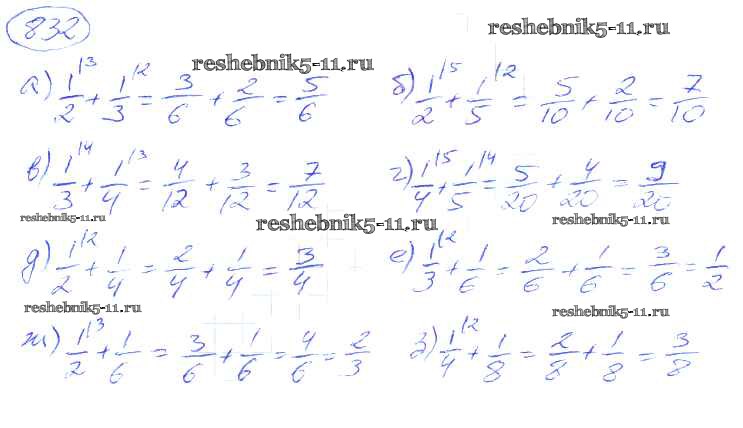 832
reshebnik5-11.ru
reshebnik5-11.ru
а) 1/2 \3 + 1/3 \2 = 3/6 + 2/6 = 5/6 б) 1/2 \5 + 1/5 \2 = 5/10 + 2/10 = 7/10
в) 1/3 \4 + 1/4 \3 = 4/12 + 3/12 = 7/12 г) 1/4 \5 + 1/5 \4 = 5/20 + 4/20 = 9/20
reshebnik5-11.ru reshebnik5-11.ru reshebnik5-11.ru
д) 1/2 \2 + 1/4 = 2/4 + 1/4 = 3/4 е) 1/3 \2 + 1/6 = 2/6 + 1/6 = 3/6 = 1/2
reshebnik5-11.ru reshebnik5-11.ru
ж) 1/2 \3 + 1/6 = 3/6 + 1/6 = 4/6 = 2/3 з) 1/4 \2 + 1/8 = 2/8 + 1/8 = 3/8